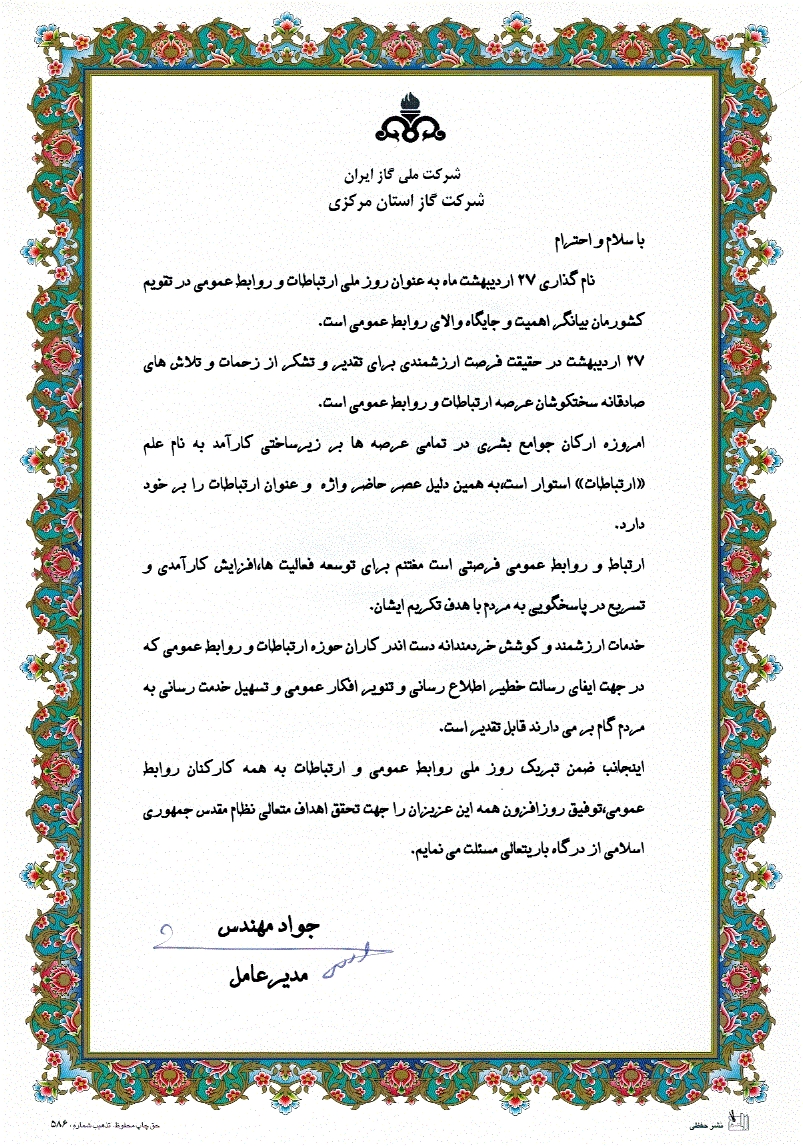 شرکت ملی گاز ایران
شرکت گاز استان مرکزی
با سلام و احترام
نام گذاری ۲۷ اردیبهشت ماه به عنوان روز ملی ارتباطات و روابط عمومی در تقویم
کشورمان بیانگر اهمیت و جایگاه والای روابط عمومی است.
۲۷ اردیبهشت در حقیقت فرصت ارزشمندی برای تقدیر و تشکر از زحمات و تلاش های
صادقانه سختکوشان عرصه ارتباطات و روابط عمومی است.
امروزه ارکان جوامع بشری در تمامی عرصه ها بر زیرساختی کارآمد به نام علم
«ارتباطات» استوار است،به همین دلیل عصر حاضر واژه و عنوان ارتباطات را بر خود
دارد.
ارتباط و روابط عمومی فرصتی است مغتنم برای توسعه فعالیت ها،افزایش کارآمدی و
تسریع در پاسخگویی به مردم با هدف تکریم ایشان.
خدمات ارزشمند و کوشش خردمندانه دست اندر کاران حوزه ارتباطات و روابط عمومی که
در جهت ایفای رسالت خطیر اطلاع رسانی و تنویر افکار عمومی و تسهیل خدمت رسانی به
مردم گام بر می دارند قابل تقدیر است.
اینجانب ضمن تبریک روز ملی روابط عمومی و ارتباطات به همه کارکنان روابط
عمومی،توفیق روزافزون همه این عزیزان را جهت تحقق اهداف متعالی نظام مقدس جمهوری
اسلامی از درگاه باریتعالی مسئلت می نمایم.
جواد مهندس
مدیرعامل
نشر حفظی
حق چاپ محفوظ. تذهیب شماره ۵۸۶۰